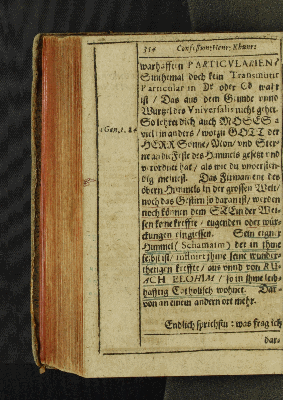 314 Confession: Henr: Khunr:
warhafften PARTICVLARIEN?
Sintemal doch kein Transmutir
Particular in ☉ oder ☽ wahr
ist / Das aus dem Grunde vnnd
Wurtzel des Vniversalis nicht gehet.
So lehret dich auch MOSES a
viel in anders / worzu GOTT der
1 Gen. 1.
HERR Sonne / Mon / vnd Ster-
ne an die Feste des Himmels gesetzt vnd
verordnet hat / als wie du vnverstän-
dig meinest. Das Firmament des
obern Himmels in der grossen Welt /
noch das Gestirn so daran ist / werden
noch können dem STEin der Wei-
sen keine kreffte / tugenden oder wür-
ckungen eingiessen. Sein eigner
Himmel (Schamaim) der in ihme
selbst ist / influirt ihme seine wunder-
thetigen kreffte / aus vnnd von RU-
ACH ELOHIM / so in ihme leib-
hafftig Catholisch wohnet. Dar-
von an einem andern ort mehr.
Endlich sprichstu: was frag ich
dar-